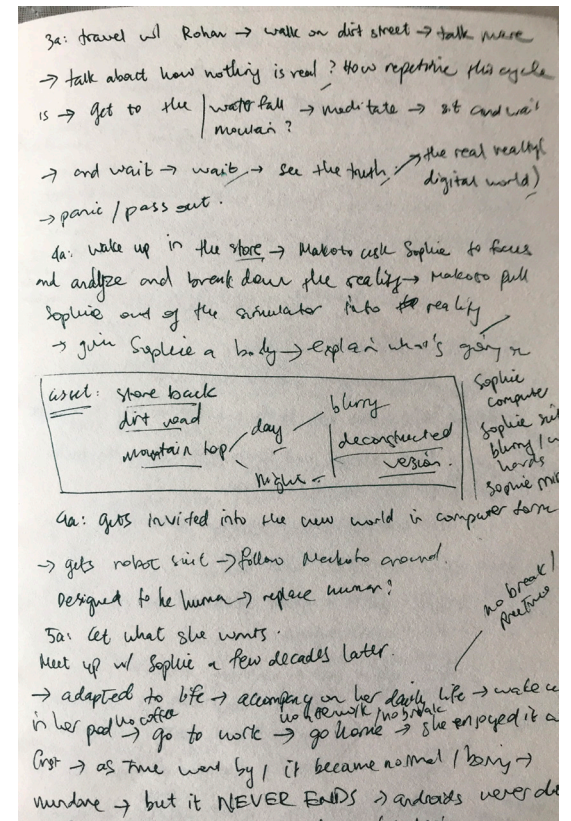 3a: travel w/ Rohan → walk on dirt street → talk more
→ talk about how nothing is real? How repetitive this cycle
is → get to the | waterfall → meditate → sit and wait
moutain?
→ and wait → wait → see the truth → the real reality (
digital world)
→ panic / pass out.
4a: wake up in the store → Makoto ask Sophie to focus
and analyze and break down the reality → Makoto pull
Sophie out of the simulator into reality
→ give Sophie a body → explain what's going on
asset: store back
dirt road
mountain top
day
night
blurry
deconstructed
version.
Sophie
computer
Sophie suit
blurry /
hands
Sophie
4a: gets invited into the new world in computer form
→ gets robot suit → follow Makoto around.
Designed to be human → replace human?
5a: Get what she wants.
Meet up w/ Sophie a few decades later.
no break /
→ adapted to life → accompany on her daily life → wake
no coffee no homework / no break
in her pod → go to work → go home → she enjoyed it a
first → as time went by / it became normal / boring →
mundane → but it NEVER ENDS → androids never di